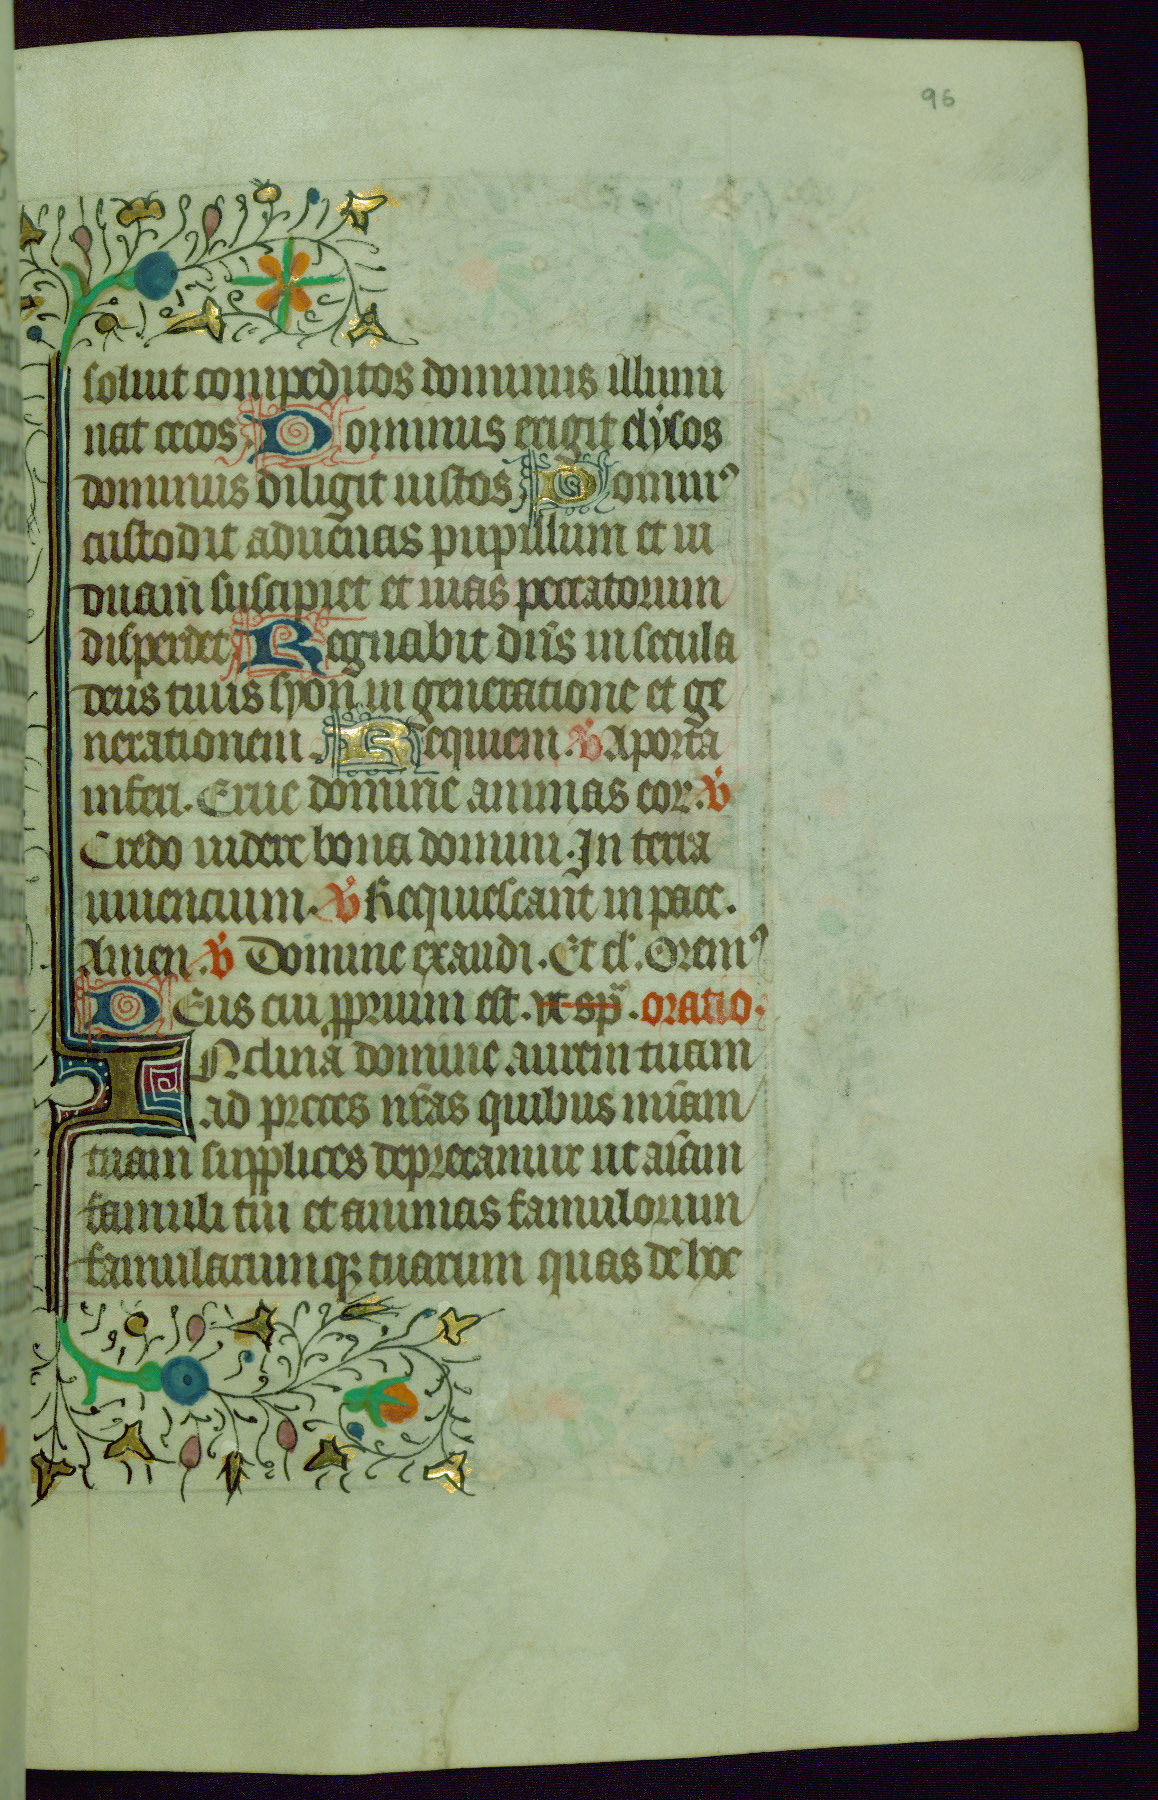 96
soluit compeditos dominus illumi
nat cecos Dominus erigit elysos
dominus diligit iustos Dominꝰ
custodit aduēnas pupillum et ui
duam suscipiet et uias peccatorum
disperdet Regnabit dn̄s in secula
deus tuus syon in generatione et ge
nerationem Requiem. ℣ A porta
inferi. Erue domine animas eor. ℣
Credo uidere bona domini. In terra
uiuencium. ℣ Requiescant in pace.
Amen. ℣ Domine exaudi. Et cl'. Oremꝰ
DEus cui ꝓprium est. vt sp̄. oratio.
INclina domine aurem tuam
ad preces nr̄as quibus mīam
tuam supplices deprecamur ut aīam
famuli tui et animas famulorum
famularumqꝫ tuarum quas de hoc